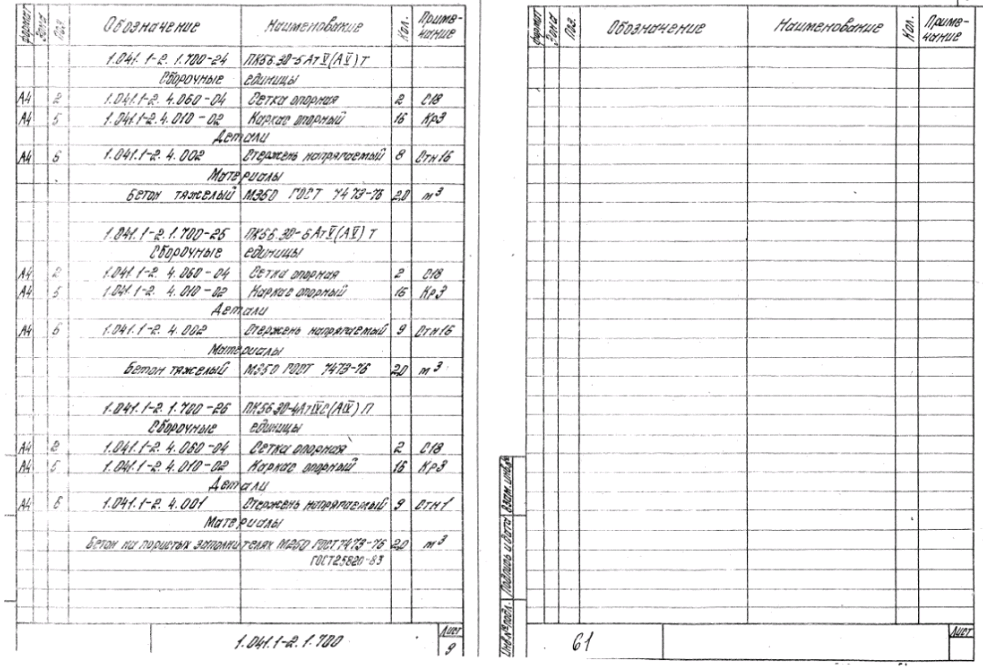 формат Зона Поз. Обозначение Наименование Кол. Приме-
чание
1.041.1-2.1.700-24 ПК56.30-5АтV(АV)Т
Сборочные единицы
А4 2 1.041.1-2.4.060-04 Сетка опорная 2 С18
А4 5 1.041.1-2.4.010-02 Каркас опорный 16 Кр3
Детали
А4 6 1.041.1-2.4.002 Стержень напрягаемый 8 Стн16
Материалы
Бетон тяжелый М350 ГОСТ 7473-76 2,0 m³
1.041.1-2.1.700-25 ПК56.30-6АтV(АV)Т
Сборочные единицы
А4 2 1.041.1-2.4.060-04 Сетка опорная 2 С18
А4 5 1.041.1-2.4.010-02 Каркас опорный 16 Кр3
Детали
А4 6 1.041.1-2.4.002 Стержень напрягаемый 9 Стн16
Материалы
Бетон тяжелый М350 ГОСТ 7473-76 2,0 m³
1.041.1-2.1.700-26 ПК56.30-4АтIVС(АIV)П
Сборочные единицы
А4 2 1.041.1-2.4.060-04 Сетка опорная 2 С18
А4 5 1.041.1-2.4.010-02 Каркас опорный 16 Кр3
Детали
А4 6 1.041.1-2.4.001 Стержень напрягаемый 9 Стн1
Материалы
Бетон на пористых заполнителях М250 ГОСТ 7473-76 2,0 m³
ГОСТ 25820-83
1.041.1-2.1.700
Лист
9
формат Зона Поз. Обозначение Наименование Кол. Приме-
чание
Инв.№подл. Подпись и дата Взам.инв.№
61
Лист